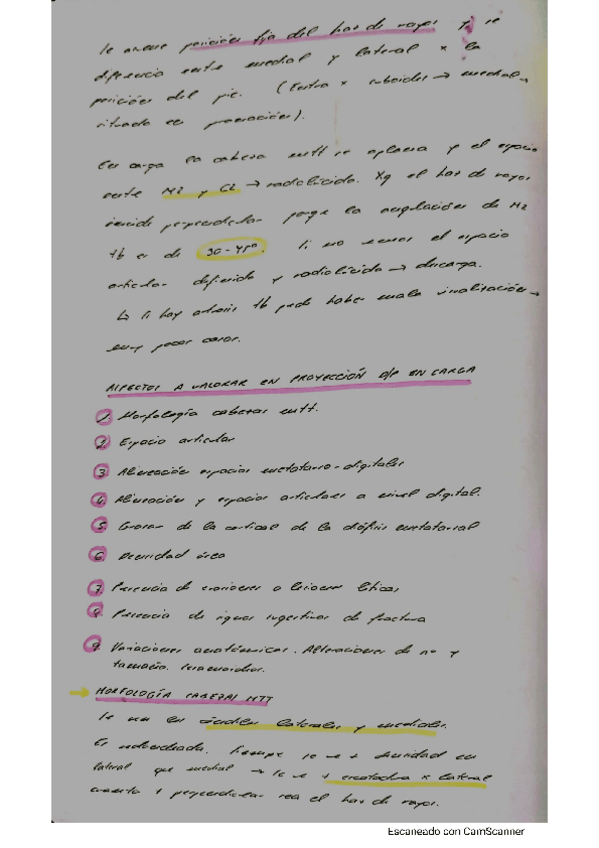 Se mueve posición fija del haz de rayos y se
diferencia entre medial y lateral x la
posición del pie. (Entra x cuboides → medial,
situado en pronación).
En carga la cabeza mtt se aplana y el espacio
entre M2 y C2 → radiolúcido. Xq el haz de rayos
incide perpendicular porque la angulación de M2
tb es de 30-45º. Si no vemos el espacio
articular definido y radiolúcido → descarga.
↳ Si hay artrosis tb puede haber mala visualización →
muy pocos casos.
ASPECTOS A VALORAR EN PROYECCIÓN D/P EN CARGA
1. Morfología cabezas mtt.
2. Espacio articular
3. Alineación espacios metatarso-digitales
4. Alineación y espacios articulares a nivel digital.
5. Grosor de la cortical de la diáfisis metatarsal
6. Densidad ósea
7. Presencia de erosiones o lesiones líticas
8. Presencia de signos sugestivos de fractura
9. Variaciones anatómicas. Alteraciones de nº y
tamaño. Sesamoideos.
→ MORFOLOGÍA CABEZAS MTT
Se ve en laterales y mediales.
Es redondeada. Siempre se ve + densidad en
lateral que medial → se ve + x lateral
cuanto + perpendicular sea el haz de rayos.
Escaneado con CamScanner